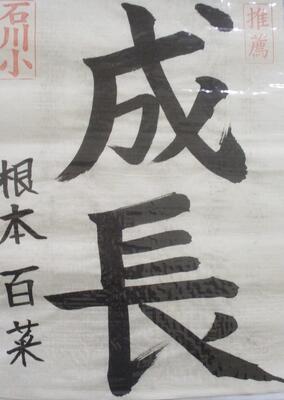 推薦
成長
石川小
根本 百菜